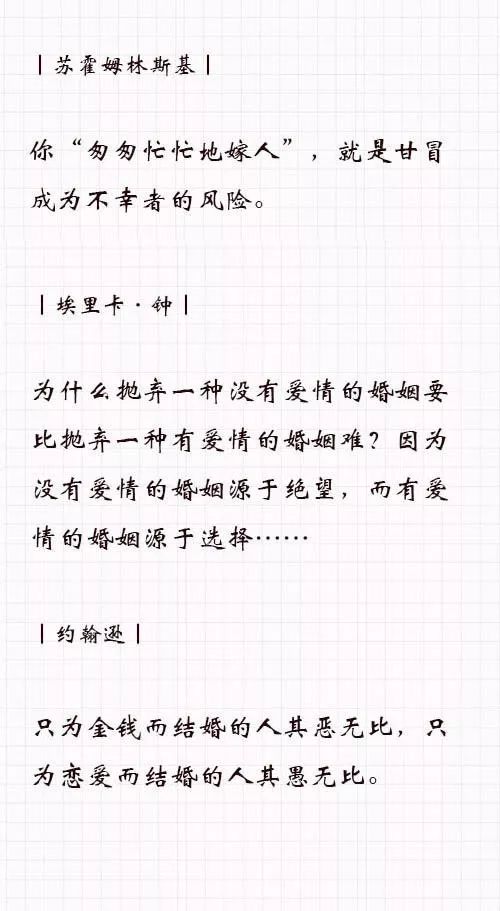 |苏霍姆林斯基|
你“匆匆忙忙地嫁人”，就是甘冒
成为不幸者的风险。
|埃里卡·钟|
为什么抛弃一种没有爱情的婚姻要
比抛弃一种有爱情的婚姻难？因为
没有爱情的婚姻源于绝望，而有爱
情的婚姻源于选择……
|约翰逊|
只为金钱而结婚的人其恶无比，只
为恋爱而结婚的人其愚无比。